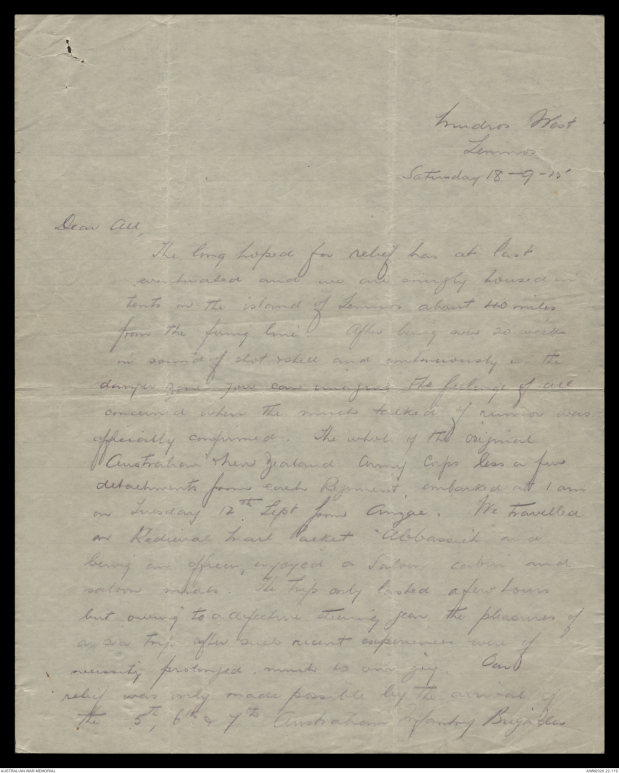 Mudros West
Lemnos
Saturday 18-9-15
Dear All,
The long hoped for relief has at last
eventuated and we are snugly housed in
tents on the island of Lemnos about 40 miles
from the firing line. After being over 20 weeks
in sound of shot & shell and continuously in the
danger zone you can imagine the feelings of all
concerned when the much talked of rumor was
officially confirmed. The whole of the original
Australian & New Zealand Army Corps less a few
detachments from each Regiment embarked at 1 am
on Tuesday 12th Sept from Anzac. We travelled
on Khedivial Mail Packet "Abbassieh" and
being an officer, enjoyed a Saloon cabin and
saloon meals. The trip only lasted a few hours
but owing to a defective steering gear the pleasures of
a sea trip after such recent experiences were of
necessity prolonged much to our joy. Our
relief was only made possible by the arrival of
the 5th, 6th & 7th Australian Infantry Brigades
AUSTRALIAN WAR MEMORIAL